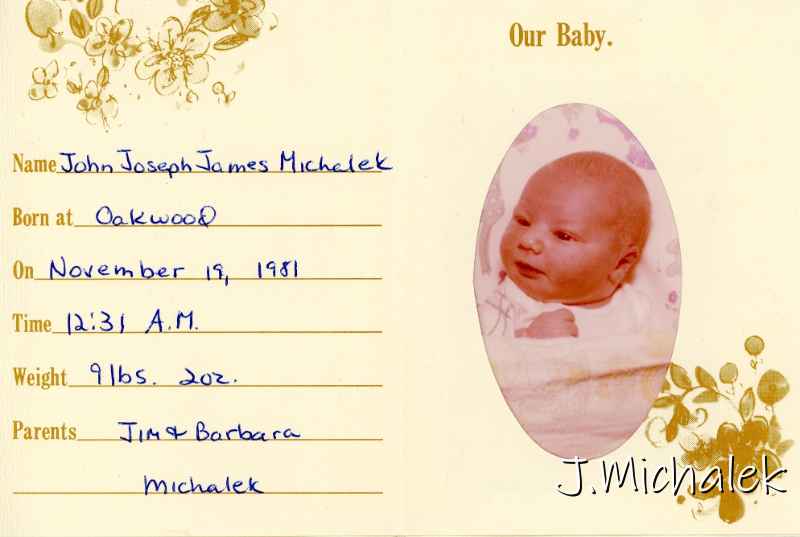 Our Baby.
Name John Joseph James Michalek
Born at Oakwood
On November 19, 1981
Time 12:31 A.M.
Weight 9lbs. 2oz.
Parents Jim & Barbara
Michalek
J.Michalek